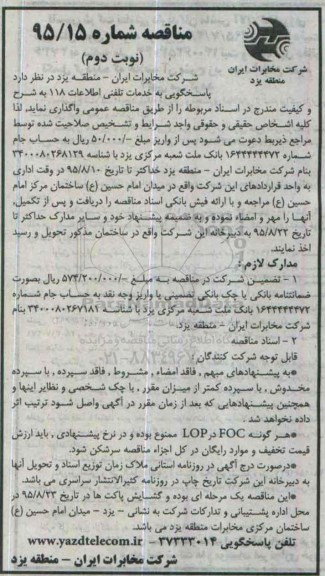 مناقصه شماره ۹۵/۱۵
(نوبت دوم)
شرکت مخابرات ایران
منطقه یزد
شرکت مخابرات ایران - منطقـه یزد در نظر دارد
پاسخگویی به خدمات تلفنی اطلاعات ۱۱۸ به شرح
و کیفیت مندرج در اسناد مربوطه را از طریق مناقصه عمومی واگذاری نماید. لذا
کلیه اشخاص حقیقی و حقوقی واجد شرایط و تشخیص صلاحیت شده توسط
مراجع ذیربط دعوت می شود پس از واریز مبلغ -/۵۰/۰۰۰ ریال به حساب جام
شماره ۱۶۴۴۴۴۴۴۷۲ بانک ملت شعبه مرکزی یزد با شناسه ۳۴۰۰۰۸۰۲۶۸۱۲۹
بنام شرکت مخابرات ایران - منطقه یزد حداکثر تا تاریخ ۹۵/۸/۱۰ در وقت اداری
به واحد قراردادهای این شرکت واقع در میدان امام حسین (ع) ساختمان مرکز امام
حسین (ع) مراجعه و با ارائه فیش بانکی اسناد مناقصه را دریافت و پس از تکمیل،
آنهـا را مهر و امضاء نموده و به ضمیمه پیشنهاد خود و سایر مدارک حداکثر تا
تاریخ ۹۵/۸/۲۲ به دبیرخانه این شرکت واقع در ساختمان مذکور تحویل و رسید
اخذ نمایند.
مدارک لازم :
۱ - تضمیـن شـرکت در مناقصـه بـه مبلـغ -/۵۷۴/۲۰۰/۰۰۰ ریال بصورت
ضمانتنامه بانکی یا چک بانکی تضمینی یا واریز وجه نقد به حساب جام شـماره
۱۶۴۴۴۴۴۴۷۲ بانک ملت شعبه مرکزی یزد با شناسه ۳۴۰۰۰۸۰۲۶۷۱۸۱ بنام
شرکت مخابرات ایران - منطقه یزد.
۲ - اسناد مناقصه
قابل توجه شرکت کنندگان :
●به پیشنهادهای مبهم , فاقد امضاء , مشروط , فاقد سپرده , با سپرده
مخدوش , با سپرده کمتر از میزان مقرر , با چک شخصی و نظایر اینها و
همچنین پیشنهادهایی که بعد از زمان مقرر در آگهی واصل شود ترتیب اثر
داده نخواهد شد .
●هـر گونـه FOC در LOP ممنوع بوده و در نرخ پیشنهادی , باید ارزش
قیمت تخفیف و موارد رایگان در کل اجزاء مناقصه سرشکن شود.
●درصورت درج آگهی در روزنامه استانی ملاک زمان توزیع اسناد و تحویل آنها
به دبیرخانه این شرکت تاریخ چاپ در روزنامه کثیرالانتشار سراسری می باشد.
●این مناقصه یک مرحله ای بوده و گشـایش پاکت ها در تاریخ ۹۵/۸/۲۳ در
محل اداره پشتیبانی و تدارکات شرکت به نشانی - یزد - میدان امام حسین (ع)
ساختمان مرکزی مخابرات منطقه یزد می باشد.
تلفن پاسخگویی ۳۷۲۳۳۰۱۴ - www.yazdtelecom.ir
شرکت مخابرات ایران - منطقه یزد